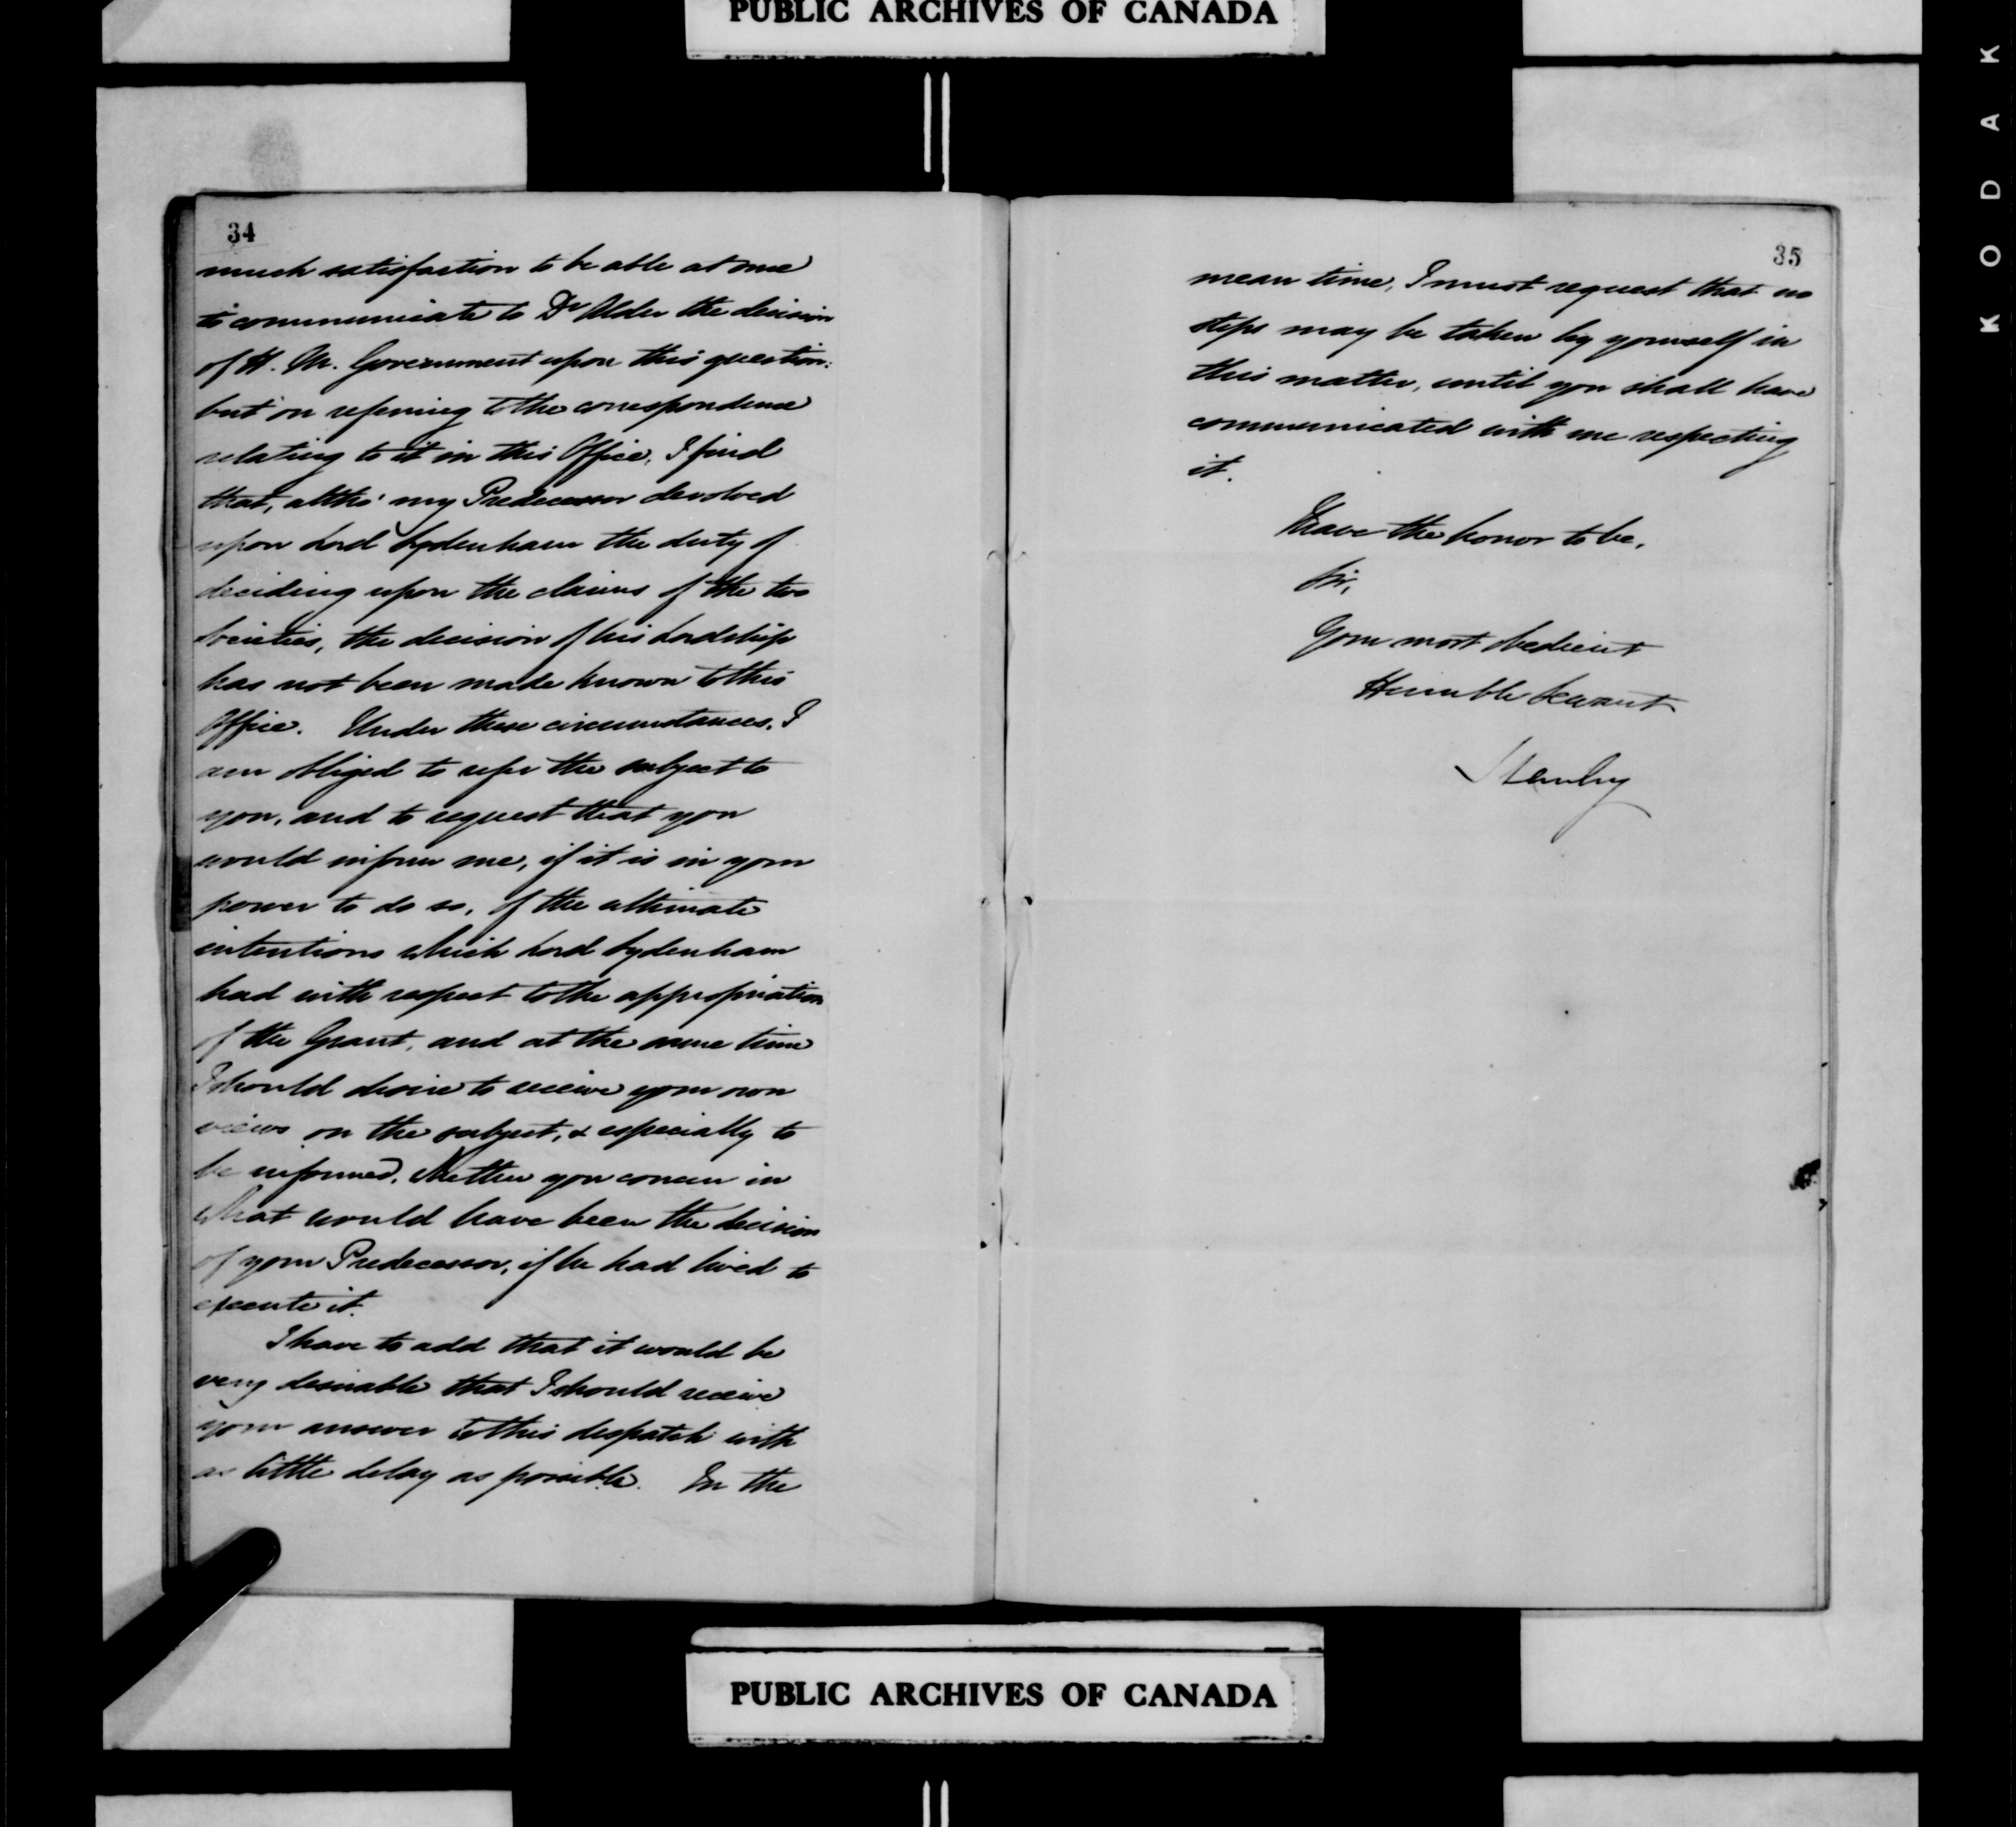 PUBLIC ARCHIVES OF CANADA
KODAK
34
much satisfaction to be able at once
to communicate to Dr Alder the decision
of H. M. Government upon this question:
but on referring to the correspondence
relating to it in this Office, I find
that, altho' my Predecessor devolved
upon Lord Sydenham the duty of
deciding upon the claims of the two
Societies, the decision of his Lordship
has not been made known to this
Office. Under these circumstances, I
am obliged to refer the subject to
you, and to request that you
would inform me, if it is in your
power to do so, of the ultimate
intentions which Lord Sydenham
had with respect to the appropriation
of the Grant, and at the same time
I should desire to receive your own
views on the subject, & especially to
be informed, whether you concur in
what would have been the decision
of your Predecessor, if he had lived to
execute it.
I have to add that it would be
very desirable that I should receive
your answer to this despatch with
as little delay as possible. In the
35
mean time, I must request that no
steps may be taken by yourself in
this matter, until you shall have
communicated with me respecting
it.
I have the honor to be,
Sir,
Your most obedient
Humble Servant
Stanley
PUBLIC ARCHIVES OF CANADA